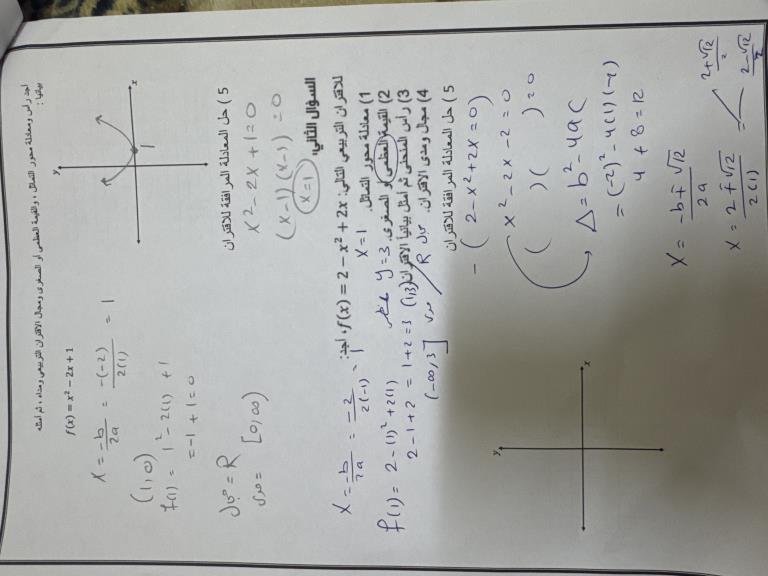 اجد رأس ومعادلة محور التماثل ، والقيمة العظمى أو الصغرى ومجال الاقتران التربيعي ومداه ، ثم امثله
بيانيا :
f(x) = x² − 2x + 1
x = -b/2a = -(-2)/2(1) = 1
(1, 0)
f(1) = 1² - 2(1) + 1
= -1 + 1 = 0
مجال = R
مدى = [0, ∞)
y
x
1
5 ) حل المعادلة المرافقة للاقتران
x² - 2x + 1 = 0
(x-1)(x-1) = 0
x = 1
السؤال الثاني:
للاقتران التربيعي التالي: f(x) = 2 − x² + 2x ، اجد:
1) معادلة محور التماثل. x = 1
2) القيمة العظمى أو الصغرى. y = 3 عظمى
3) رأس المنحنى ثم امثل بيانيا الاقتران (1,3)
4) مجال ومدى الاقتران. مجال R مدى (-∞, 3]
x = -b/2a = -2/2(-1) = 1
f(1) = 2 - (1)² + 2(1)
2 - 1 + 2 = 1 + 2 = 3
5 ) حل المعادلة المرافقة للاقتران
- ( 2 - x² + 2x = 0 )
x² - 2x - 2 = 0
( ) ( ) = 0
Δ = b² - 4ac
= (-2)² - 4(1)(-2)
4 + 8 = 12
x = -b ∓ √12 / 2a
x = 2 ∓ √12 / 2(1) =
2+√12 / 2
2-√12 / 2
y
x